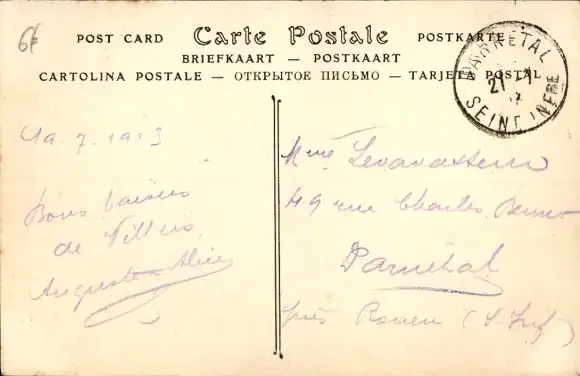 6f
POST CARD Carte Postale POSTKARTE
BRIEFKAART — POSTKAART
CARTOLINA POSTALE — ОТКРЫТОЕ ПИСЬМО — TARJETA POSTAL
DARNETAL
21 - 7
SEINE INFRE
19.7.1913
Bons baisers
de Villers
Auguste Alice
Mme Levavasseur
49 rue Charles
Darnétal
près Rouen (S. Inf)